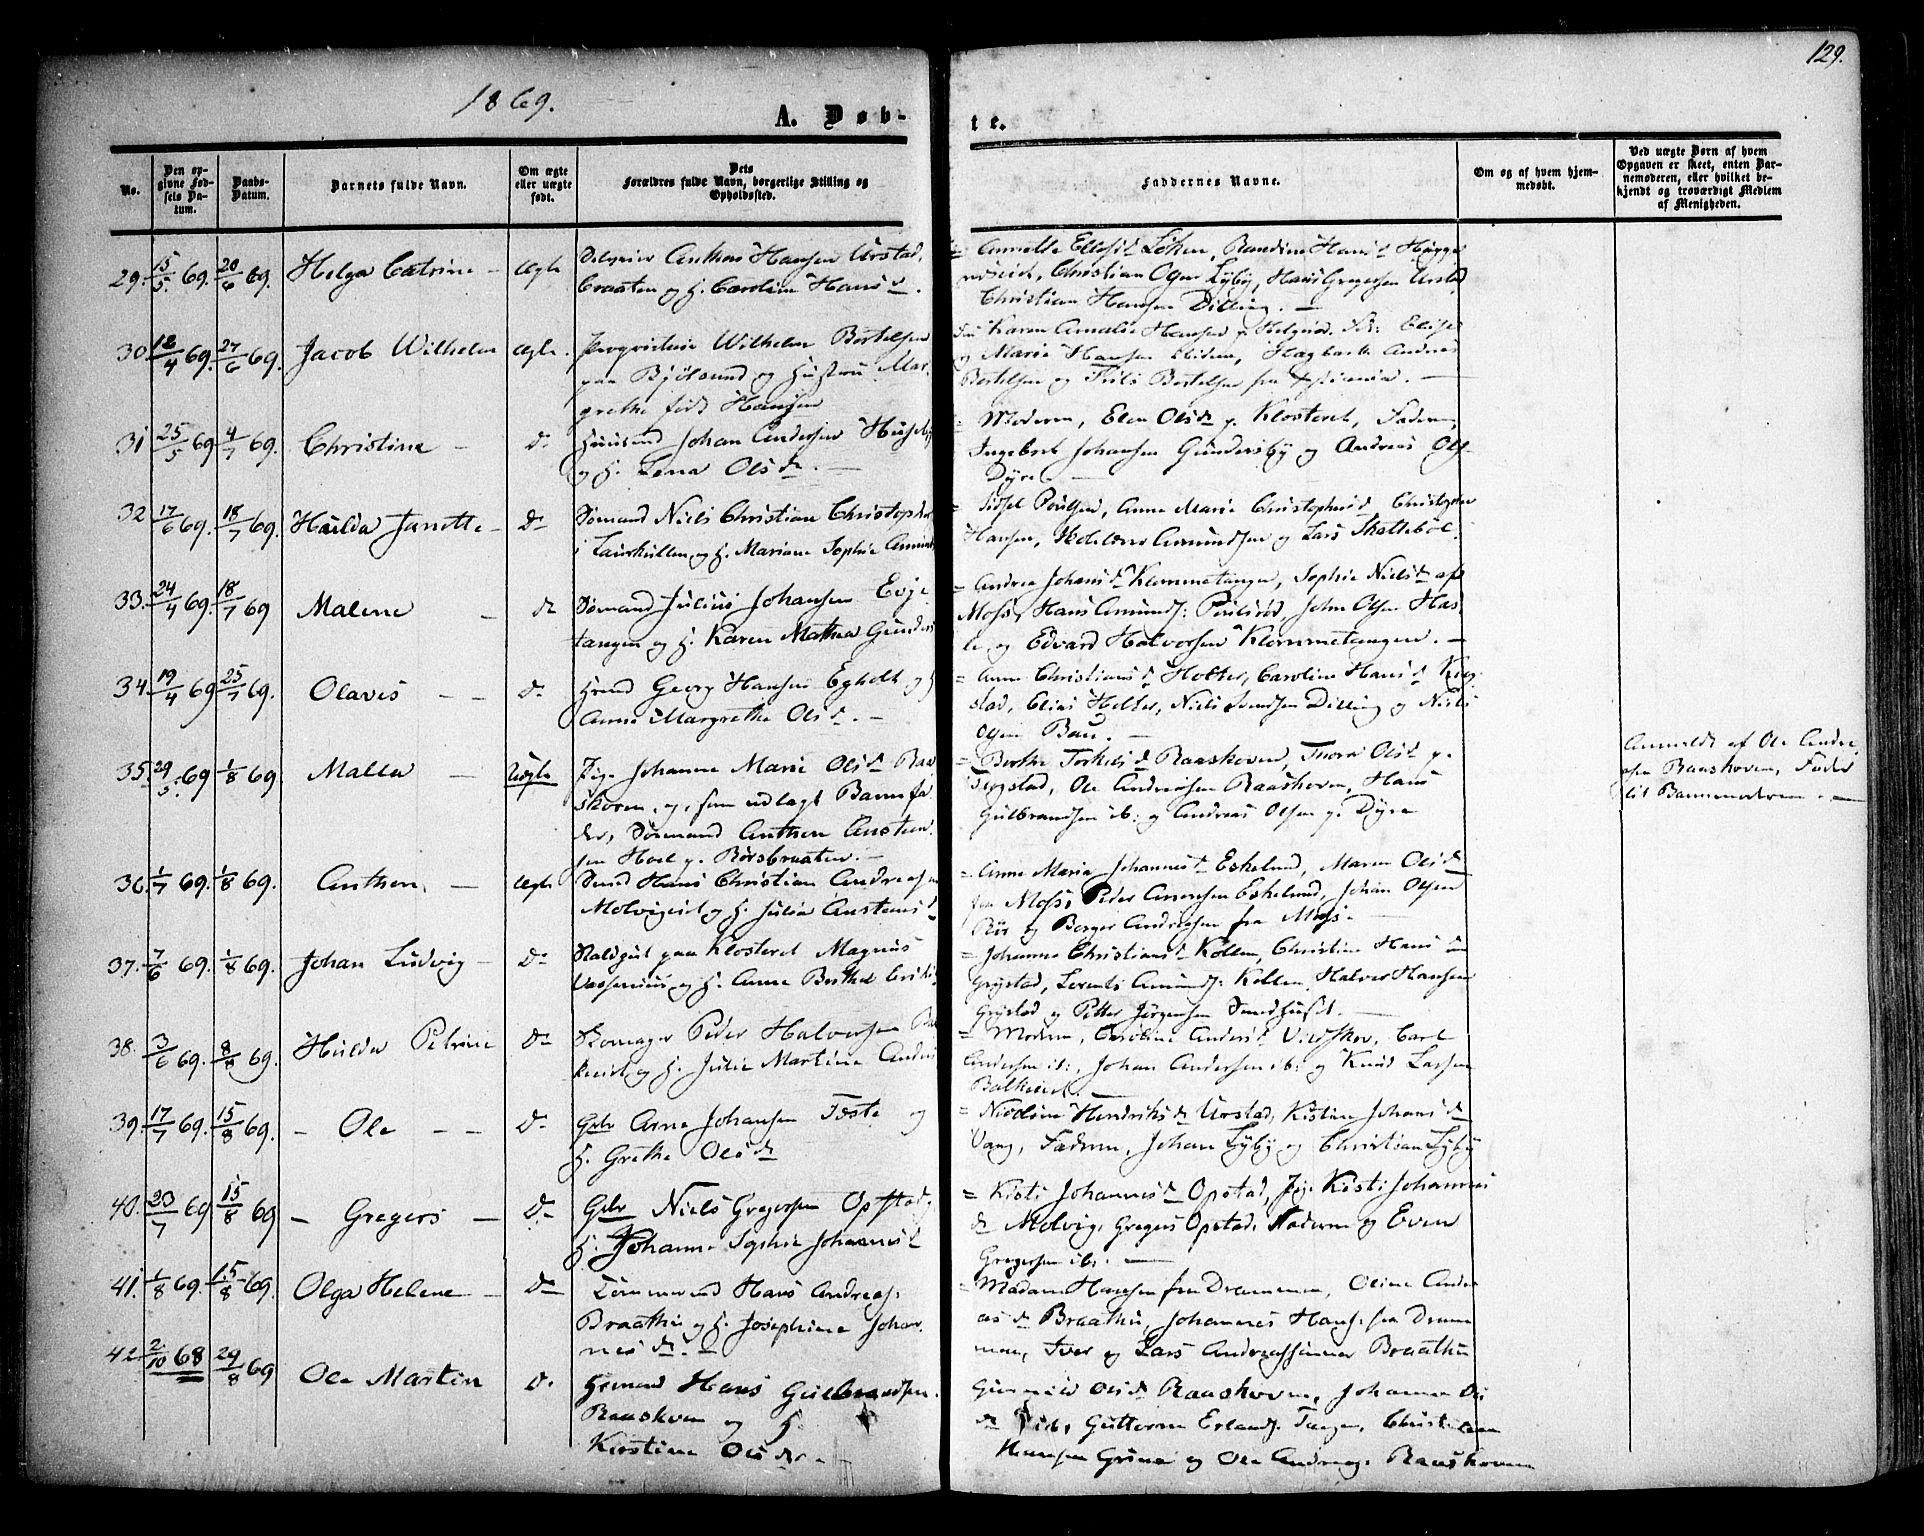 129.
1869.
A. Døb-
te.
No.
Den op-
givne Fød-
sels Da-
tum.
Daabs-
Datum.
Barnets fulde Navn.
Om ægte
eller uægte
født.
Dets
Forældres fulde Navn, borgerlige Stilling og
Opholdssted.
Faddernes Navne.
Om og af hvem hjem-
medøbt.
Ved uægte Børn af hvem
Opgaven er skeet, enten Bar-
nemoderen, eller hvilket be-
kjendt og troværdigt Medlem
af Menigheden.
29. 15/5 69. 20/6 69. Helga Catrine - Ægte
Anthon Hansen Urstad,
Braaten og H. Caroline Hansd.
Ellefsd Løken, Randine Hansd
Christian Olsen Lyby, Hans Gregersen Urstad
Christian Hansen Dilling. -
30. 12/4 69. 27/6 69. Jacob Wilhelm Ægte.
Proprietair Wilhelm Bertelsen
paa Bjølsund og Hustru Mar-
grethe født Hansen
Karen Amalie Hansen Elise
og Marie Hansen Hagbarth Andreas
Bertelsen og Bertelsen fra
31 25/5 69 4/7 69. Christine - Do
Huusmd Johan Andersen Huseby
og H. Lena Olsdr. -
= Moderen, Elen Olsdr p. Klosteret, Faderen,
Ingebret Johansen Gundersby og Andreas Ols.
Dyre -
32 17/6 69. 18/7 69. Hulda Janette - Do
Sømand Niels Christian Christophers
i Laurkullen og H. Mariane Sophie Amund
= Sidsel Poulsen, Anne Marie Christophersd Christopher
Hansen, Amundsen og Lars Skattebøl.
33. 24/4 69. 18/7 69 Malene - do
Sømand Julius Johansen Evje
tangen og H. Karen Mathea Gunders
= Andrea Johansd Klommetangen, Sophie Nielsdr af
Moss, Hans Amunds: John Olsen Has-
le og Edvard Halvorsen Klommetangen. -
34. 19/4 69 25/7 69. Olaves - - do
Georg Hansen Egholt og H
Anne Margrethe Olsdr. -
= Anne Christiansd Holter, Caroline Hansd
stad, Elias Holter, Niels Svendsen Dilling og Niels
Olsen Bau. -
35. 29/5 69 1/8 69. Mallea - Uægte
Pige Johanne Marie Olsdr Raa
skoven, og, som udlagt Barnefa
der, Sømand Anthon Austen
sen Hoel p. Rørsbraaten. -
= Berthe Torkelsdr Raaskoven, Thora Olsd p.
Ole Andreasen Raaskoven, Hans
Gulbrandsen ib: og Andreas Olsen p. Dyre
Anmeldt af Ole Andre
asen Raaskoven, Fader
til Barnemoderen. -
36. 1/7 69. 1/8 69. Anthon. - Ægte
Smed Hans Christian Andreasen
Molvigeid og H. Julia Austensd
= Anne Maria Johannesd Eskelund, Maren Olsdr
fra Moss, Peder Eskelund, Johan Olsen
Rør og Berger Andreasen fra Moss. -
37. 7/6 69. 1/8 69. Johan Ludvig - Do
paa Klosteret Magnus
og H. Anne Berthea
= Johanne Christiansd Kollen, Christine Hans
Grystad, Lorents Amunds: Kollen, Halvor Hansen
Grystad og Petter Jørgensen -
38. 3/6 69. 8/8 69. Hulda Petrine Do
Skomager Peder Halvorsen
og H. Julie Martine Anders
= Moderen, Caroline Andersd Carl
Andersen ib:, Johan Andersen ib: og Knud Larsen
39. 17/7 69. 15/8 69. - Ole - - Do
Gbr Arne Johansen Toste og
H. Grethe Olsdr
= Nicoline Hendriksdr Urstad, Kistine Johansdr
Vang, Faderen, Johan Lyby og Christian Lyby
40. 23/7 69 15/8 69 - Gregers - Do
Gbr Niels Gregersen Opstad,
H. Johanne Sophie Johannesd
= Kisti Johannesd Opstad, Pige Kisti Johannes
dr Molvig, Gregers Opstad, Faderen og Even
Gregersen ib. -
41. 1/8 69. 15/8 69. Olga Helene - Do
Tømmermd Hans Andreas.
Braathe og H. Josephine Johan-
nesdr. -
= Madam Hansen fra Drammen, Oline Andre
asdr Braathe, Johannes Hans. fra Dram
men, Iver og Lars Andreassønner Braathe
42 2/10 68 29/8 69 Ole Martin Do
Hans Gulbrandsen
Raaskoven og H.
Kirstine Olsdr. -
Gunnild Olsdr Raaskoven, Johanne Ols
dr ib, Guttorm Erlands. Tangen, Christian
Hansen og Ole Andreas. Raaskoven